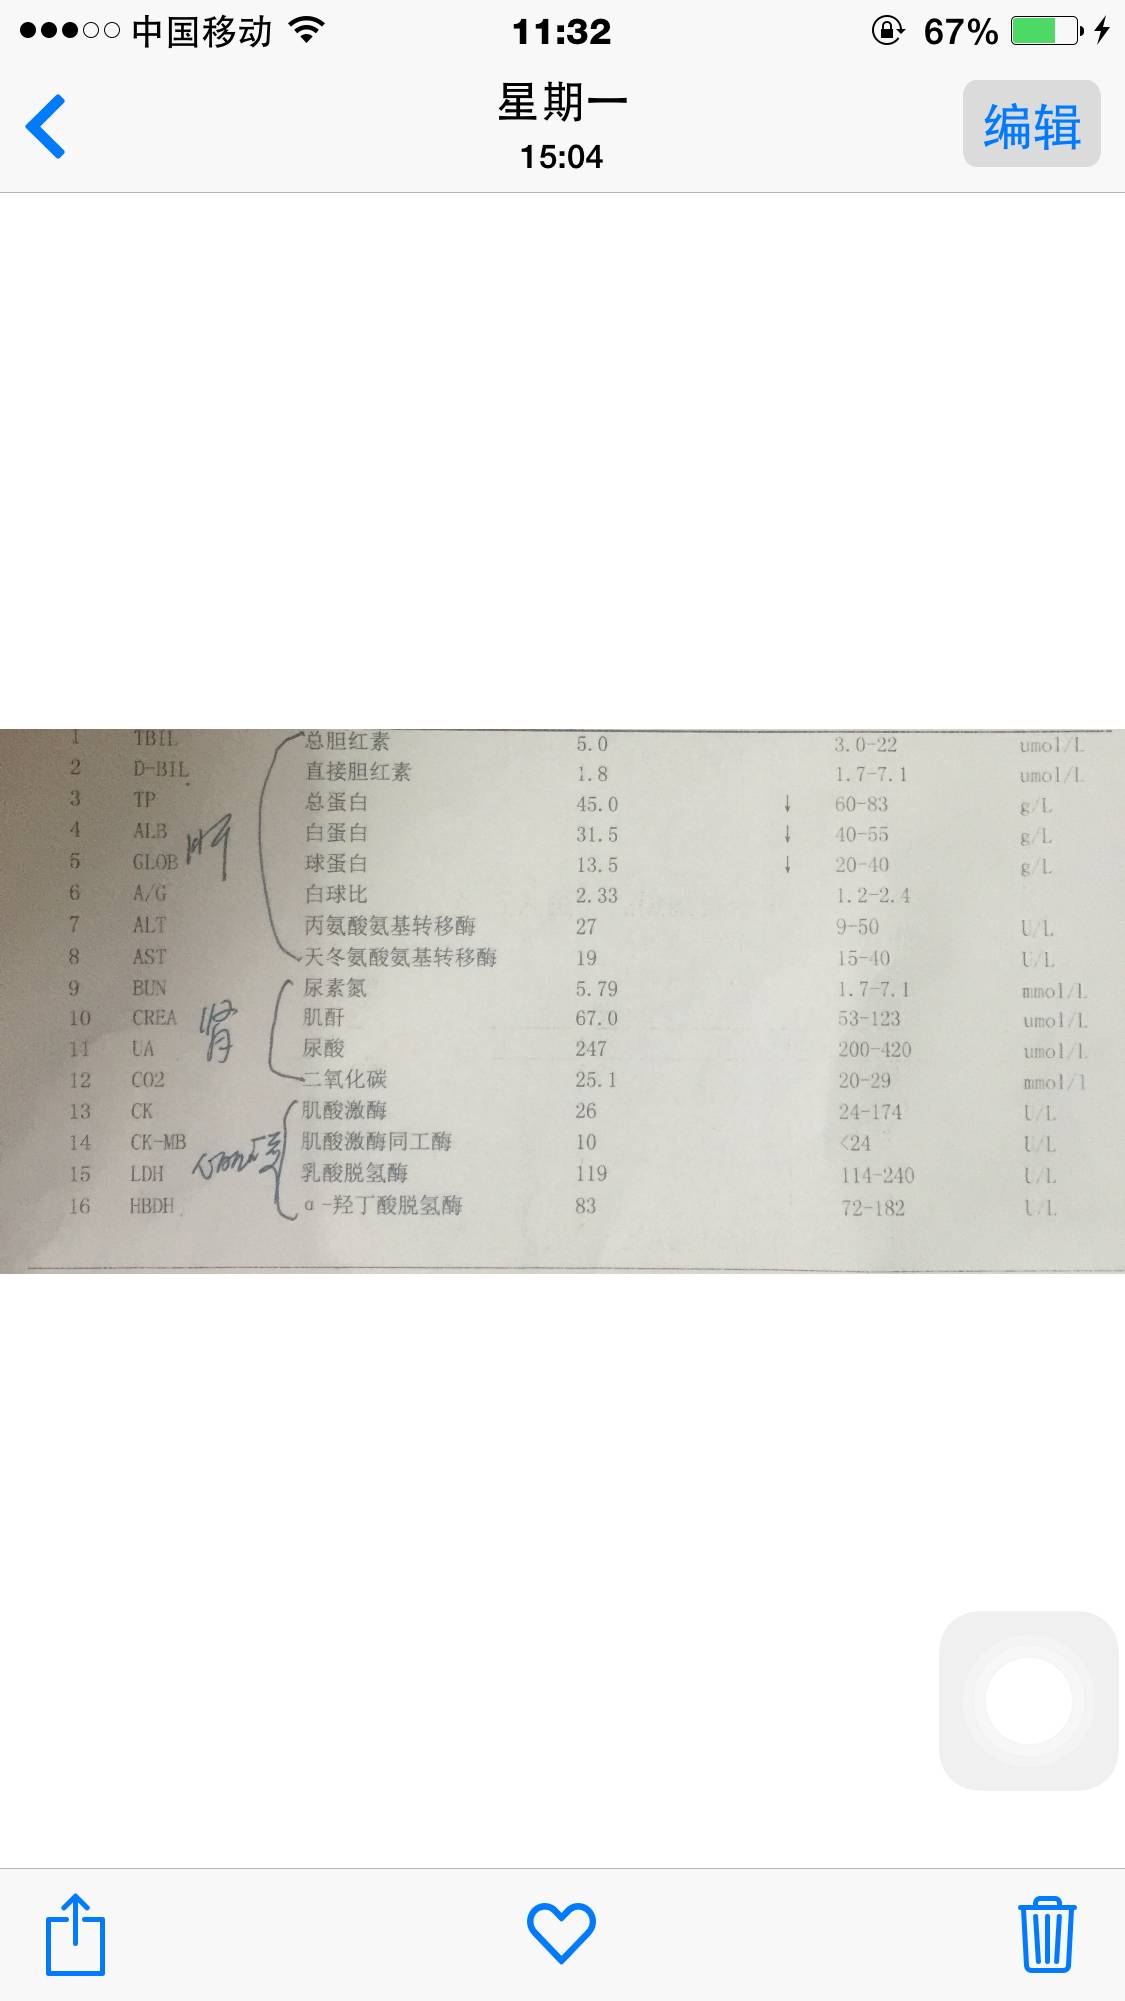 中国移动 11:32 67%
星期一
15:04
编辑
1 TBIL 总胆红素 5.0 3.0-22 umol/L
2 D-BIL 直接胆红素 1.8 1.7-7.1 umol/L
3 TP 总蛋白 45.0 ↓ 60-83 g/L
4 ALB 白蛋白 31.5 ↓ 40-55 g/L
肝
5 GLOB 球蛋白 13.5 ↓ 20-40 g/L
6 A/G 白球比 2.33 1.2-2.4
7 ALT 丙氨酸氨基转移酶 27 9-50 U/L
8 AST 天冬氨酸氨基转移酶 19 15-40 U/L
9 BUN 尿素氮 5.79 1.7-7.1 mmol/L
10 CREA 肌酐 67.0 53-123 umol/L
肾
11 UA 尿酸 247 200-420 umol/L
12 CO2 二氧化碳 25.1 20-29 mmol/l
13 CK 肌酸激酶 26 24-174 U/L
14 CK-MB 肌酸激酶同工酶 10 <24 U/L
15 LDH 乳酸脱氢酶 119 114-240 U/L
16 HBDH α-羟丁酸脱氢酶 83 72-182 U/L